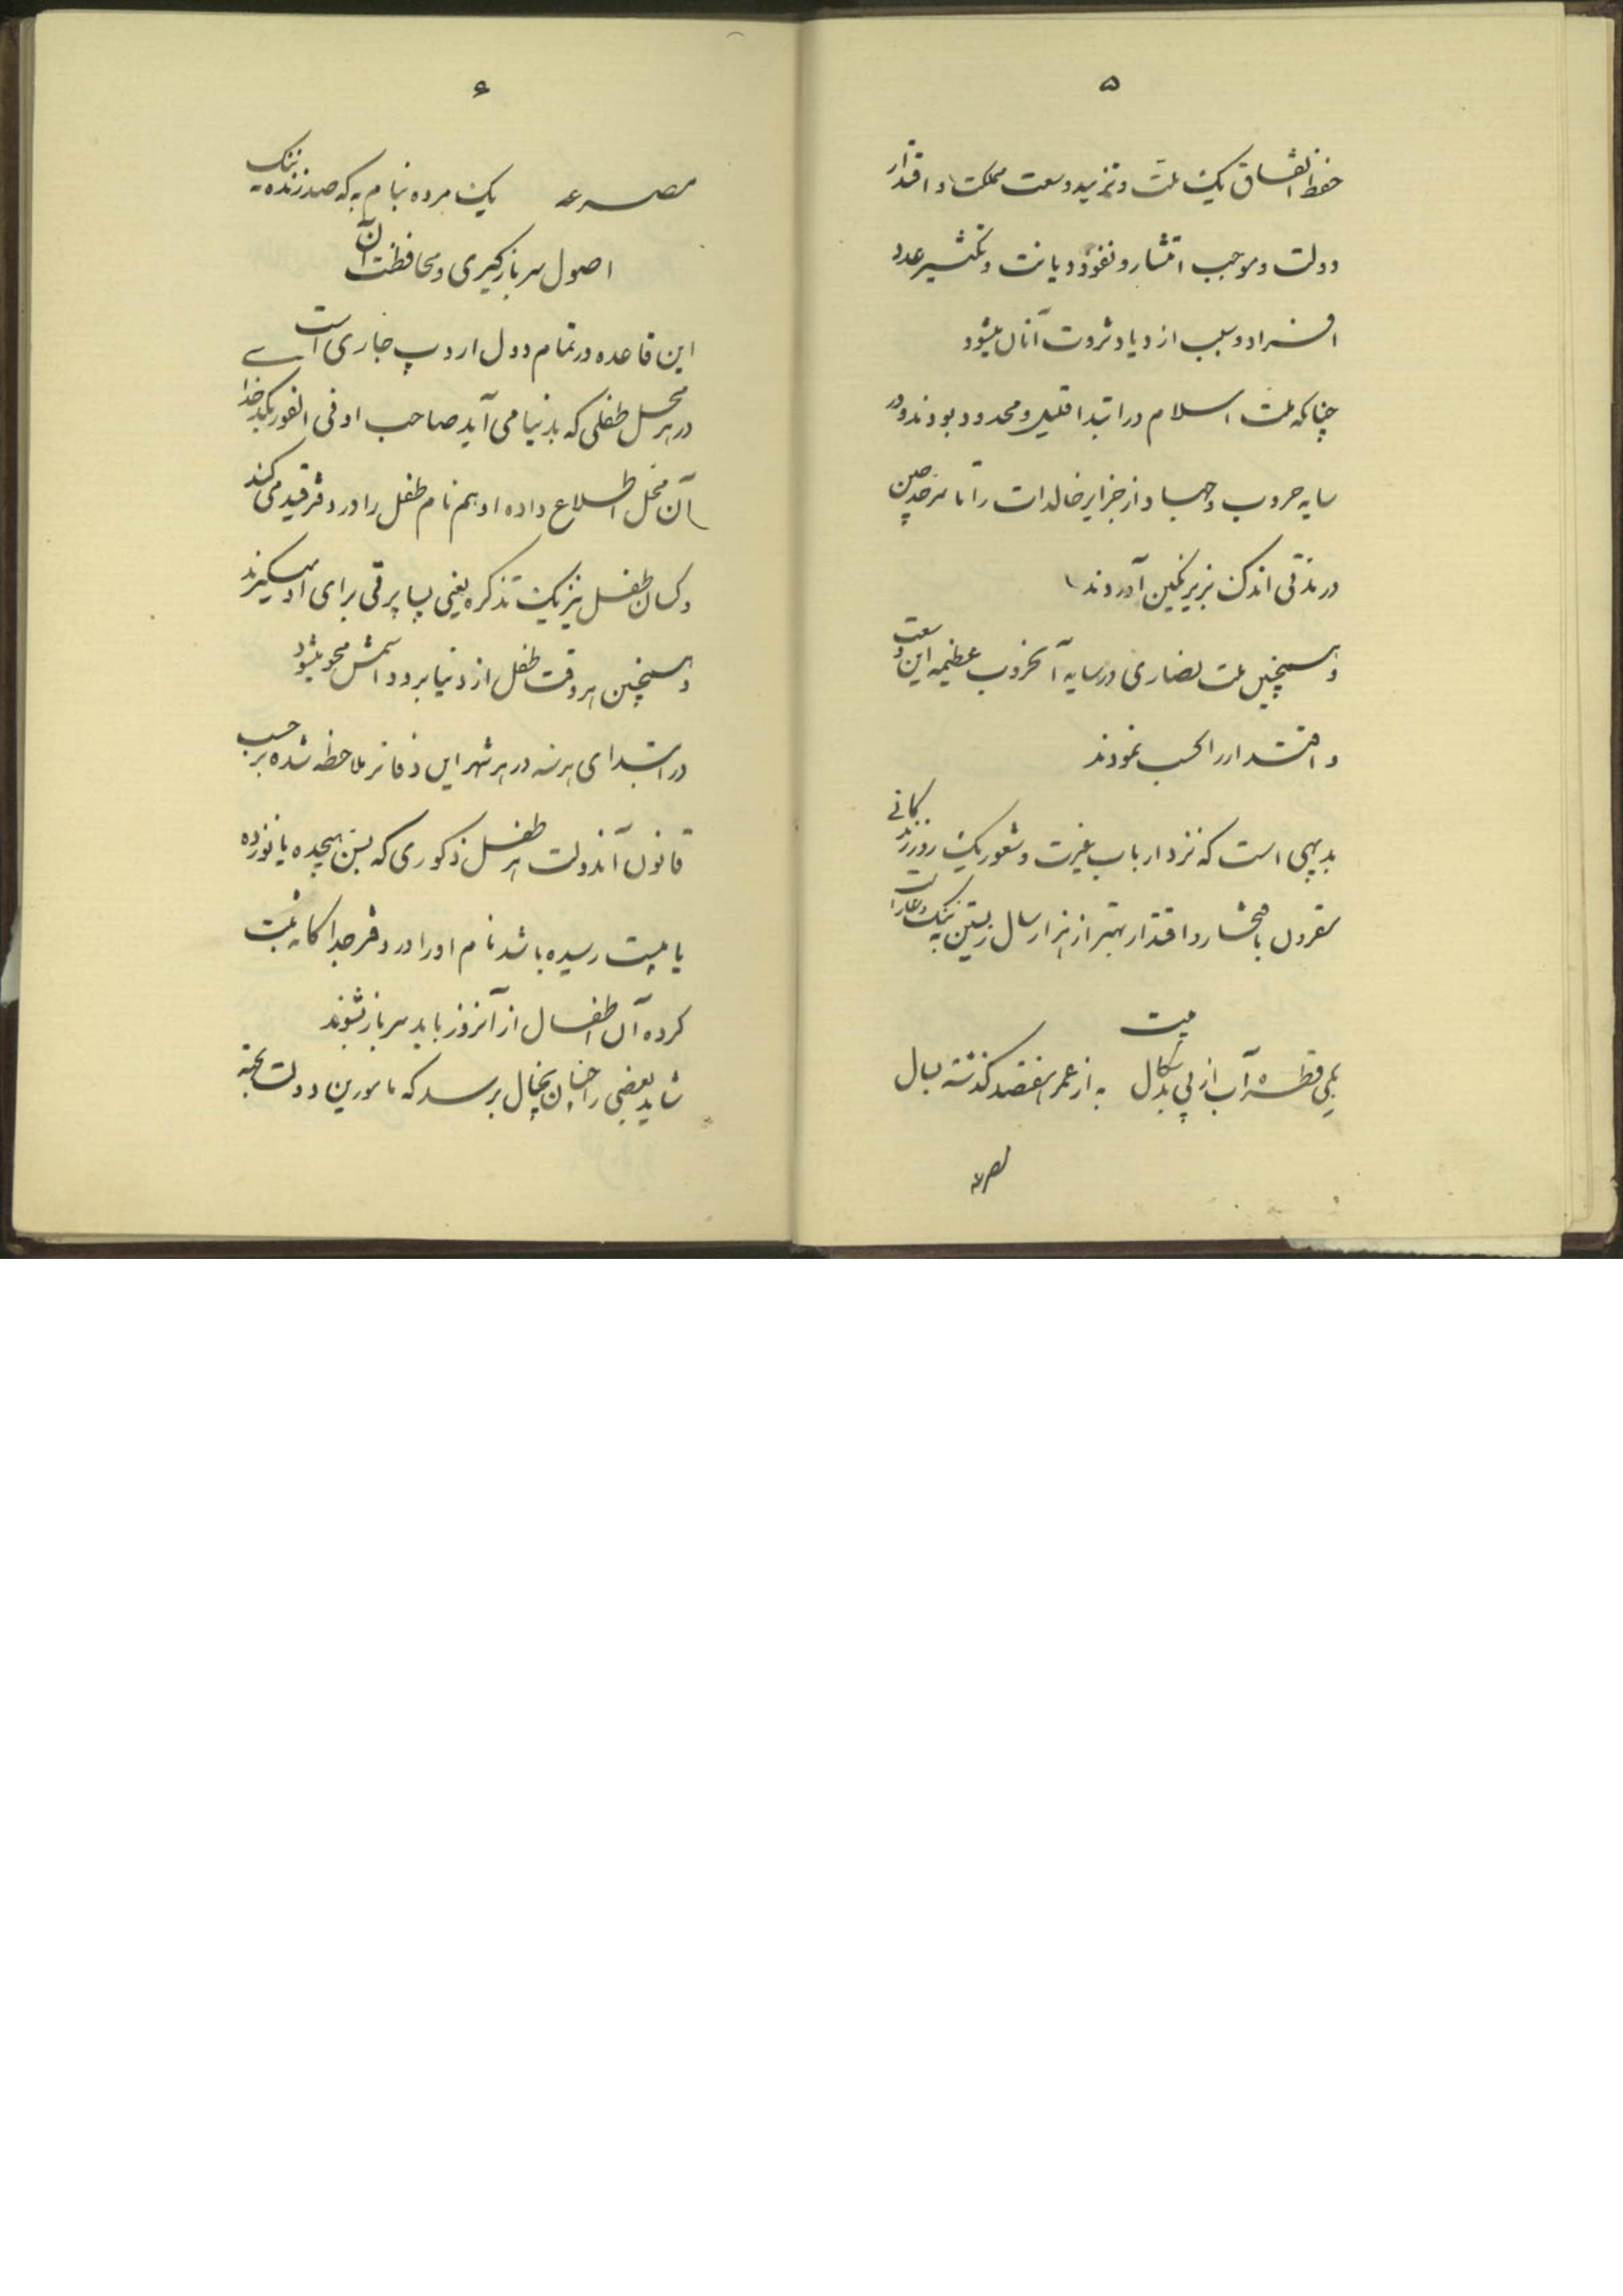 ۵
حفظ اتفاق یک ملت و تزیید وسعت مملکت و اقتدار
دولت و موجب انتشار و نفوذ دیانت و تکثیر عدد
افراد و سبب ازدیاد ثروت آنان میشود
چنانکه ملت اسلام در ابتدا قلیل و محدود بودند و در
سایه حروب و جهاد از جزایر خالدات را تا سرحد چین
در مدتی اندک بزیر نگین آوردند
و همچنین ملت نصاری در سایه آنحروب عظیمه این وسعت
و اقتدار را کسب نمودند
بدیهی است که نزد ارباب غیرت و شعور یک روز زندگانی
مقرون بافتخار و اقتدار بهتر از هزار سال زیستن به ننک و عار است
بیت
یکی قطره آب از پی بدسکال به از عمر هفتصد گذشته بسال
مصرعه
۶
مصرعه یک مرده بنام به که صد زنده به ننک
اصول سربازگیری و محافظت آن
این قاعده در تمام دول اروپ جاری است
در هر محل طفلی که بدنیا می آید صاحب او فی الفور بکدخدا
آن محل اطلاع داده او هم نام طفل را در دفتر قید می کند
و کسان طفل نیز یک تذکره یعنی پساپرتی برای او میگیرند
و همچنین هر وقت طفل از دنیا برود اسمش محو میشود
در ابتدای هر سنه در هر شهر این دفاتر ملاحظه شده بر حسب
قانون آندولت هر طفل ذکوری که بسن هیجده یا نوزده
یا بیست رسیده باشد نام او را در دفتر جداگانه ثبت
کرده آن اطفال از آنروز باید سرباز بشوند
شاید بعضی را چنان بخیال برسد که مامورین دولت بجهة